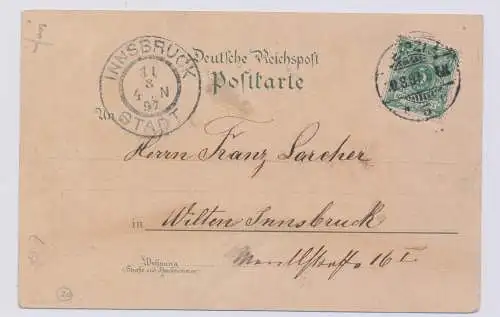 INNSBRUCK
11
8
4 N
97
STADT
Deutsche Reichspost
Postkarte
An
Herrn Franz Larcher
in Wilten Innsbruck
16 I.
Wohnung
(Straße und Hausnummer)